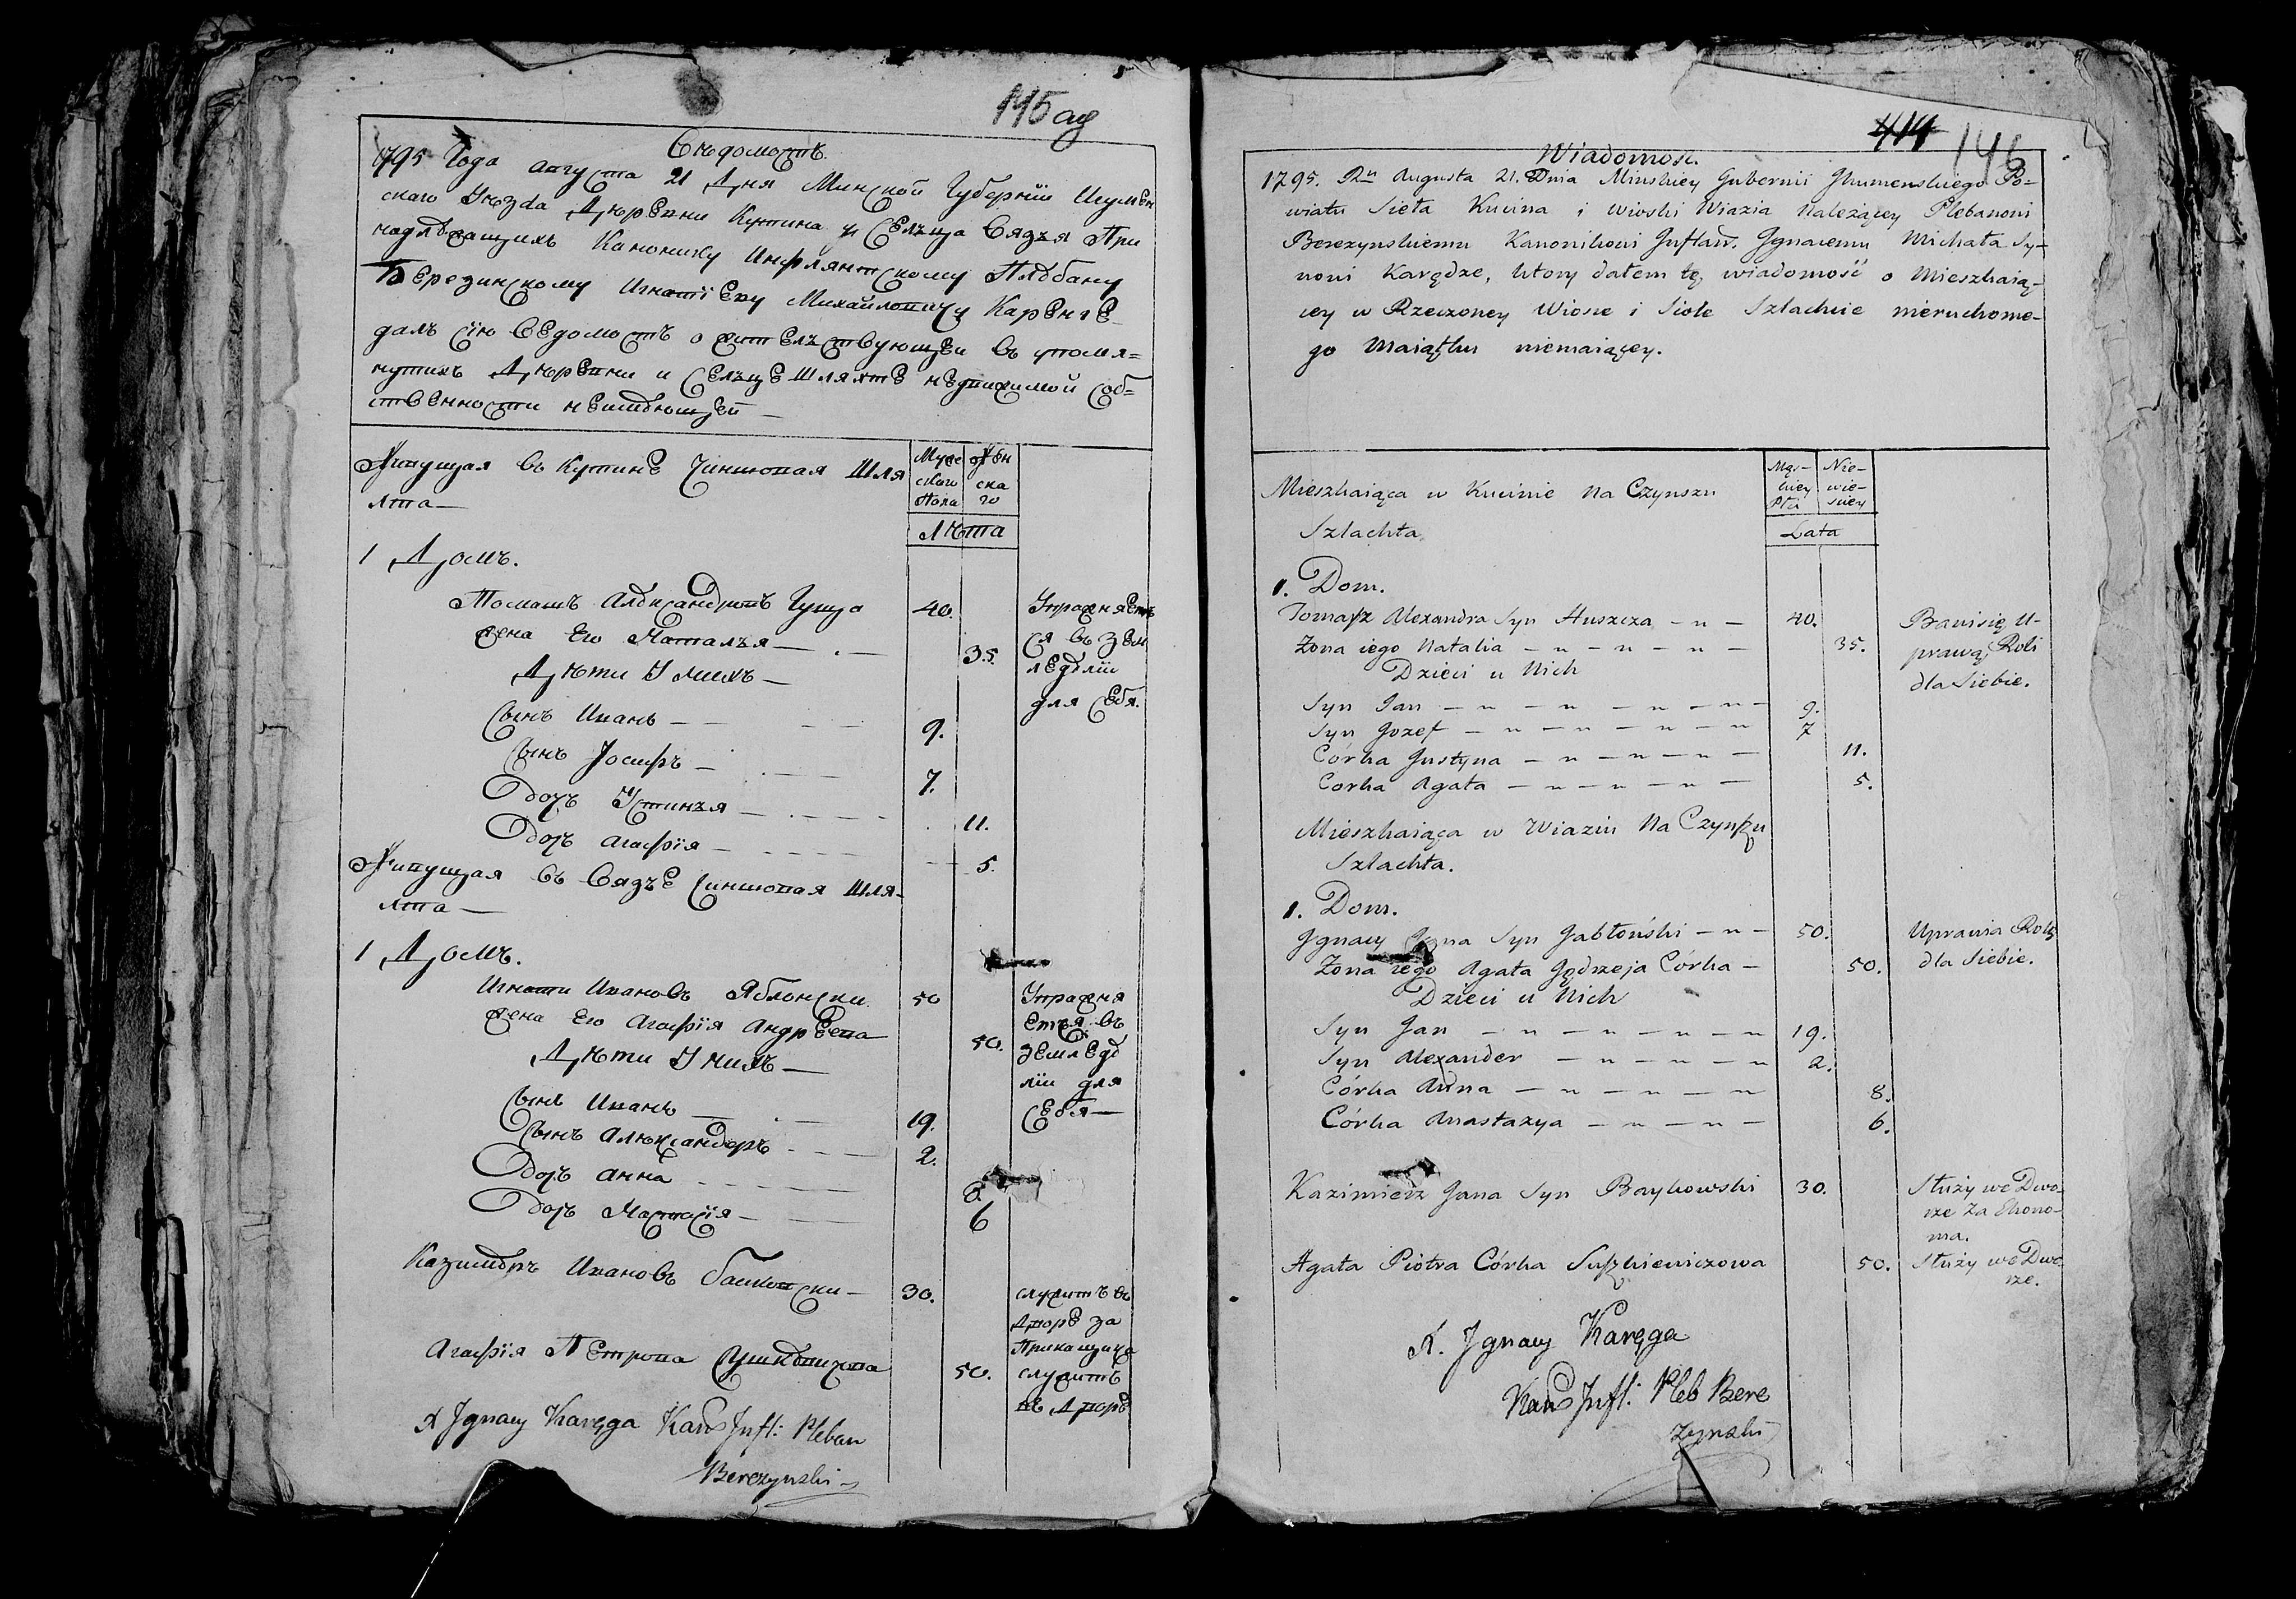 145 ад
Свѣдомость.
1795 Года августа 21 Дня Минской Губерніи Игумен
скаго Уѣзда Дѣревни Кутина и Селъца Вязъя При
надлѣжащихъ Канонику Инфлянтскому Плебану
Березинскому Игнатіеву Михайловичу Каренге
далъ сію Ведомость о жителъствующей въ упомя=
нутыхъ Дѣревни и Селъце Шляхте недвижимой соб=
ственности неимеющей —
Живущая въ Кутине Чиншовая Шля
хта —
Муже
скаго
Пола
Жен
ска
го
Лѣта
1 Домъ.
Томашъ Александровъ Гуща 40.
Упражняетъ
ся въ зем
леделіи
для себя.
жена Его Наталъя — . — 35.
Дѣти У нихъ —
Сынъ Иванъ — — — — 9.
Сынъ Јосифъ — . — — 7.
Дочъ Устинъя — . — . — . 11.
Дочъ Агафія — . — . — 5.
Живущая Въ Вязъе Чиншовая Шля-
хта —
1 Домъ.
Игнати Ивановъ Яблонски 50
Упражня
ется въ
земледе
ліи для
себя —
жена Его Агафія Андреева 50.
Дѣти У нихъ —
Сынъ Иванъ — . — 19.
Сынъ Алѣксандеръ . — . — 2.
Дочъ Анна . — . — . — 8.
Дочъ Настасія — . — 6
Казимеръ Ивановъ Байковски — 30.
служитъ въ
Дворе за
Прикащика
Агафія Петрова Сушкевичова 50.
служитъ
въ Дворе
X Jgnacy Karęga Kan Jnfl: Pleban
Berezynski
414 146
Wiadomość.
1795. Ru Augusta 21. Dnia Minskiey Gubernii Jhumenskiego Po=
wiatu Sieła Kucina i wioski Wiazia Należącey Plebanowi
Berezynskiemu Kanonikowi Jnflan. Jgnacemu Michała Sy-
nowi Karędze, ktory dałem tę, wiadomość o Mieszkaią-
cey w Rzeczoney Wiosce i Siole Szlachcie nieruchome-
go Maiątku niemaiącey.
Mieszkaiąca w Kucinie na Czynszu
Szlachta
Męs-
kiey
Płci
Nie-
wie-
sciey
Lata
1. Dom.
Tomasz Alexandra Syn Huszcza — n — 40.
Bawi się U-
prawą Roli
dla Siebie.
Zona iego Natalia — n — n — n — 35.
Dzieci u Nich
Syn Jan — n — n — n — n — 9.
Syn Jozef — n — n — n — n 7
Córka Justyna — n — n — n — 11.
Corka Agata — n — n — n — 5.
Mieszkaiąca w Wiaziu Na Czynszu
Szlachta.
1. Dom.
Jgnacy Jana Syn Jabłoński — n — 50.
Uprawia Rolę
dla Siebie.
Zona iego Agata Jędrzeja Córka — 50.
Dzieci u Nich
Syn Jan — n — n — n — n 19.
Syn Alexander — n — n — n 2.
Córka Anna — n — n — n — 8.
Córka Anastazya — n — n — 6.
Kazimierz Jana Syn Baykowski 30.
Służy we Dwo-
rze za Ekono-
ma.
Agata Piotra Córka Suszkiewiczowa 50.
Służy we Dwo
rze.
X. Jgnacy Karęga
Kan Jnfl: Pleb Bere
zynski